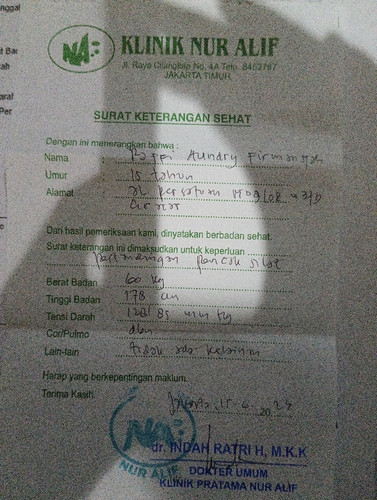 nggal
t Bad
ah
arat
Per
NAF
KLINIK NUR ALIF
Jl. Raya Cilangkap No. 4A Telp. 8452767
JAKARTA TIMUR
SURAT KETERANGAN SEHAT
Dengan ini menerangkan bahwa :
Nama :
Umur 15 tahun
Alamat
Dari hasil pemeriksaan kami, dinyatakan berbadan sehat.
Surat keterangan ini dimaksudkan untuk keperluan
pertandingan pencak silat
Berat Badan 60 kg
Tinggi Badan 178 cm
Tensi Darah mm Hg
Cor/Pulmo dbn
Lain-lain tidak ada kelainan
Harap yang berkepentingan maklum.
Terima Kasih. 20 24
NUR ALIF
dr. INDAH RATRI H, M.K.K
DOKTER UMUM
KLINIK PRATAMA NUR ALIF